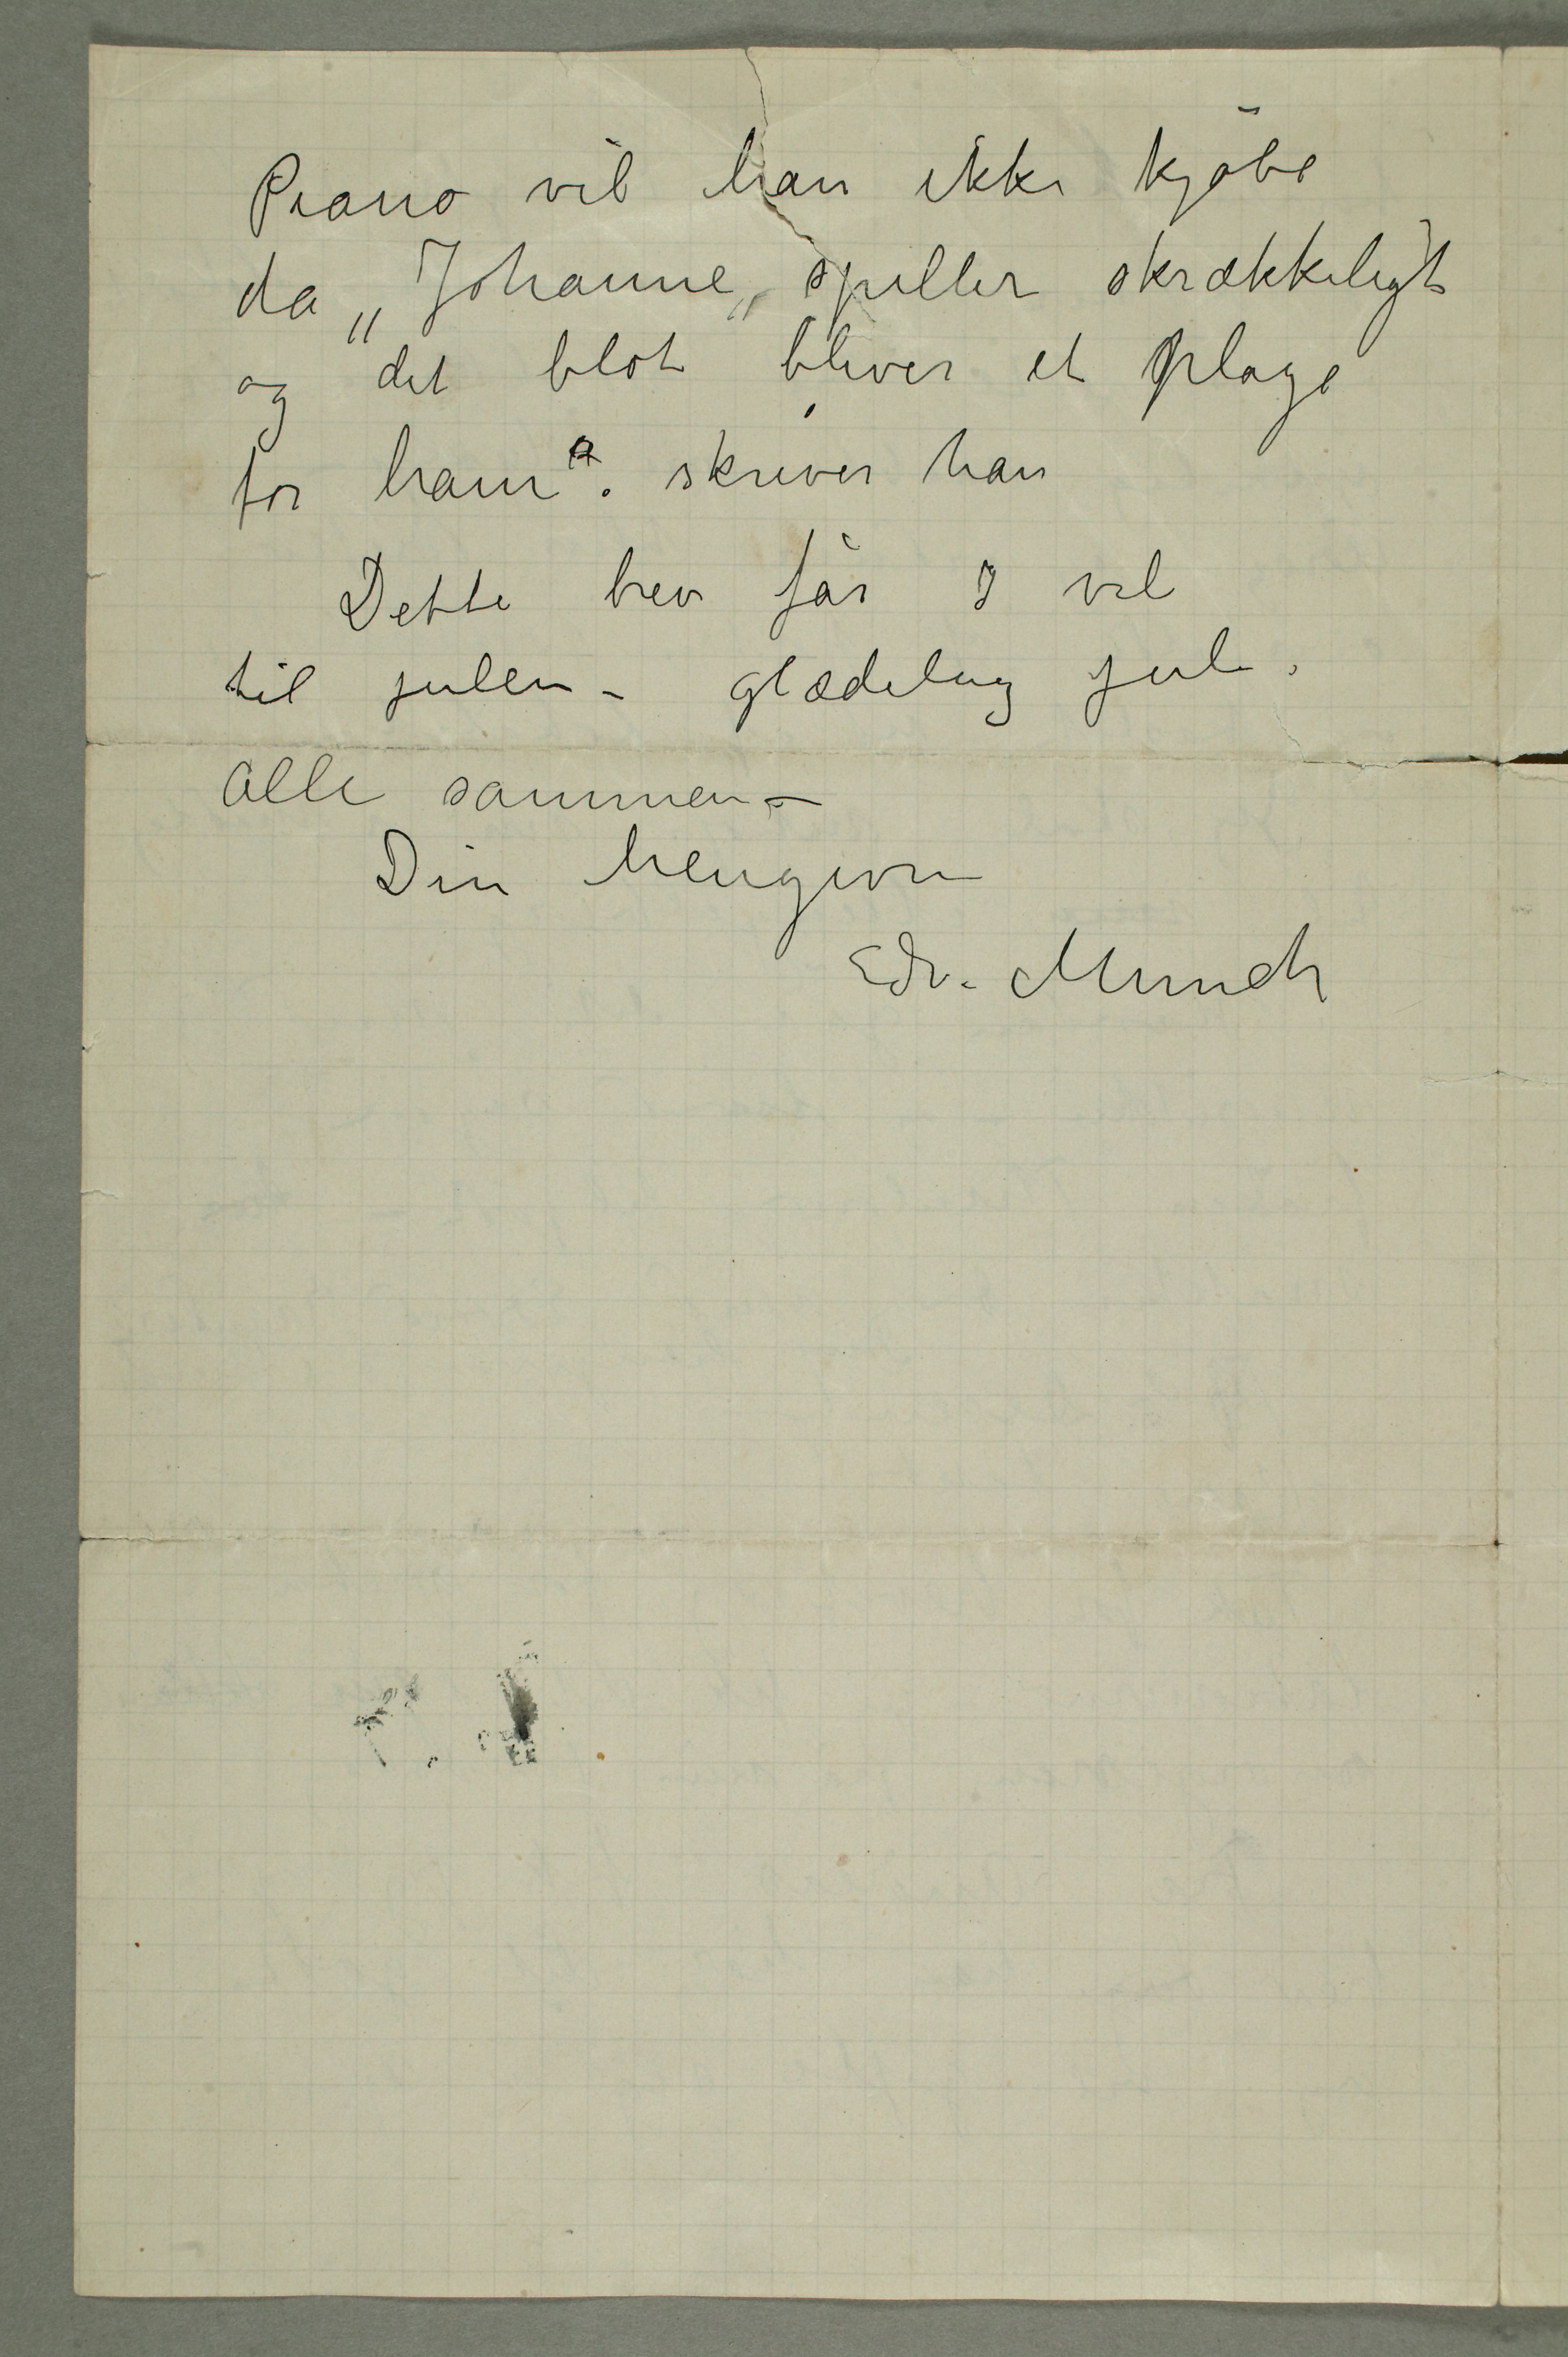 Piano vil han ikke kjøbe
da „Johanne„ spiller skrækkeligt
og det blot bliver et plage
for ham“. skriver han
Dette brev får I vel
til julen – glædelig jul.
alle sammen –
Din hengivne
Edv. Munch